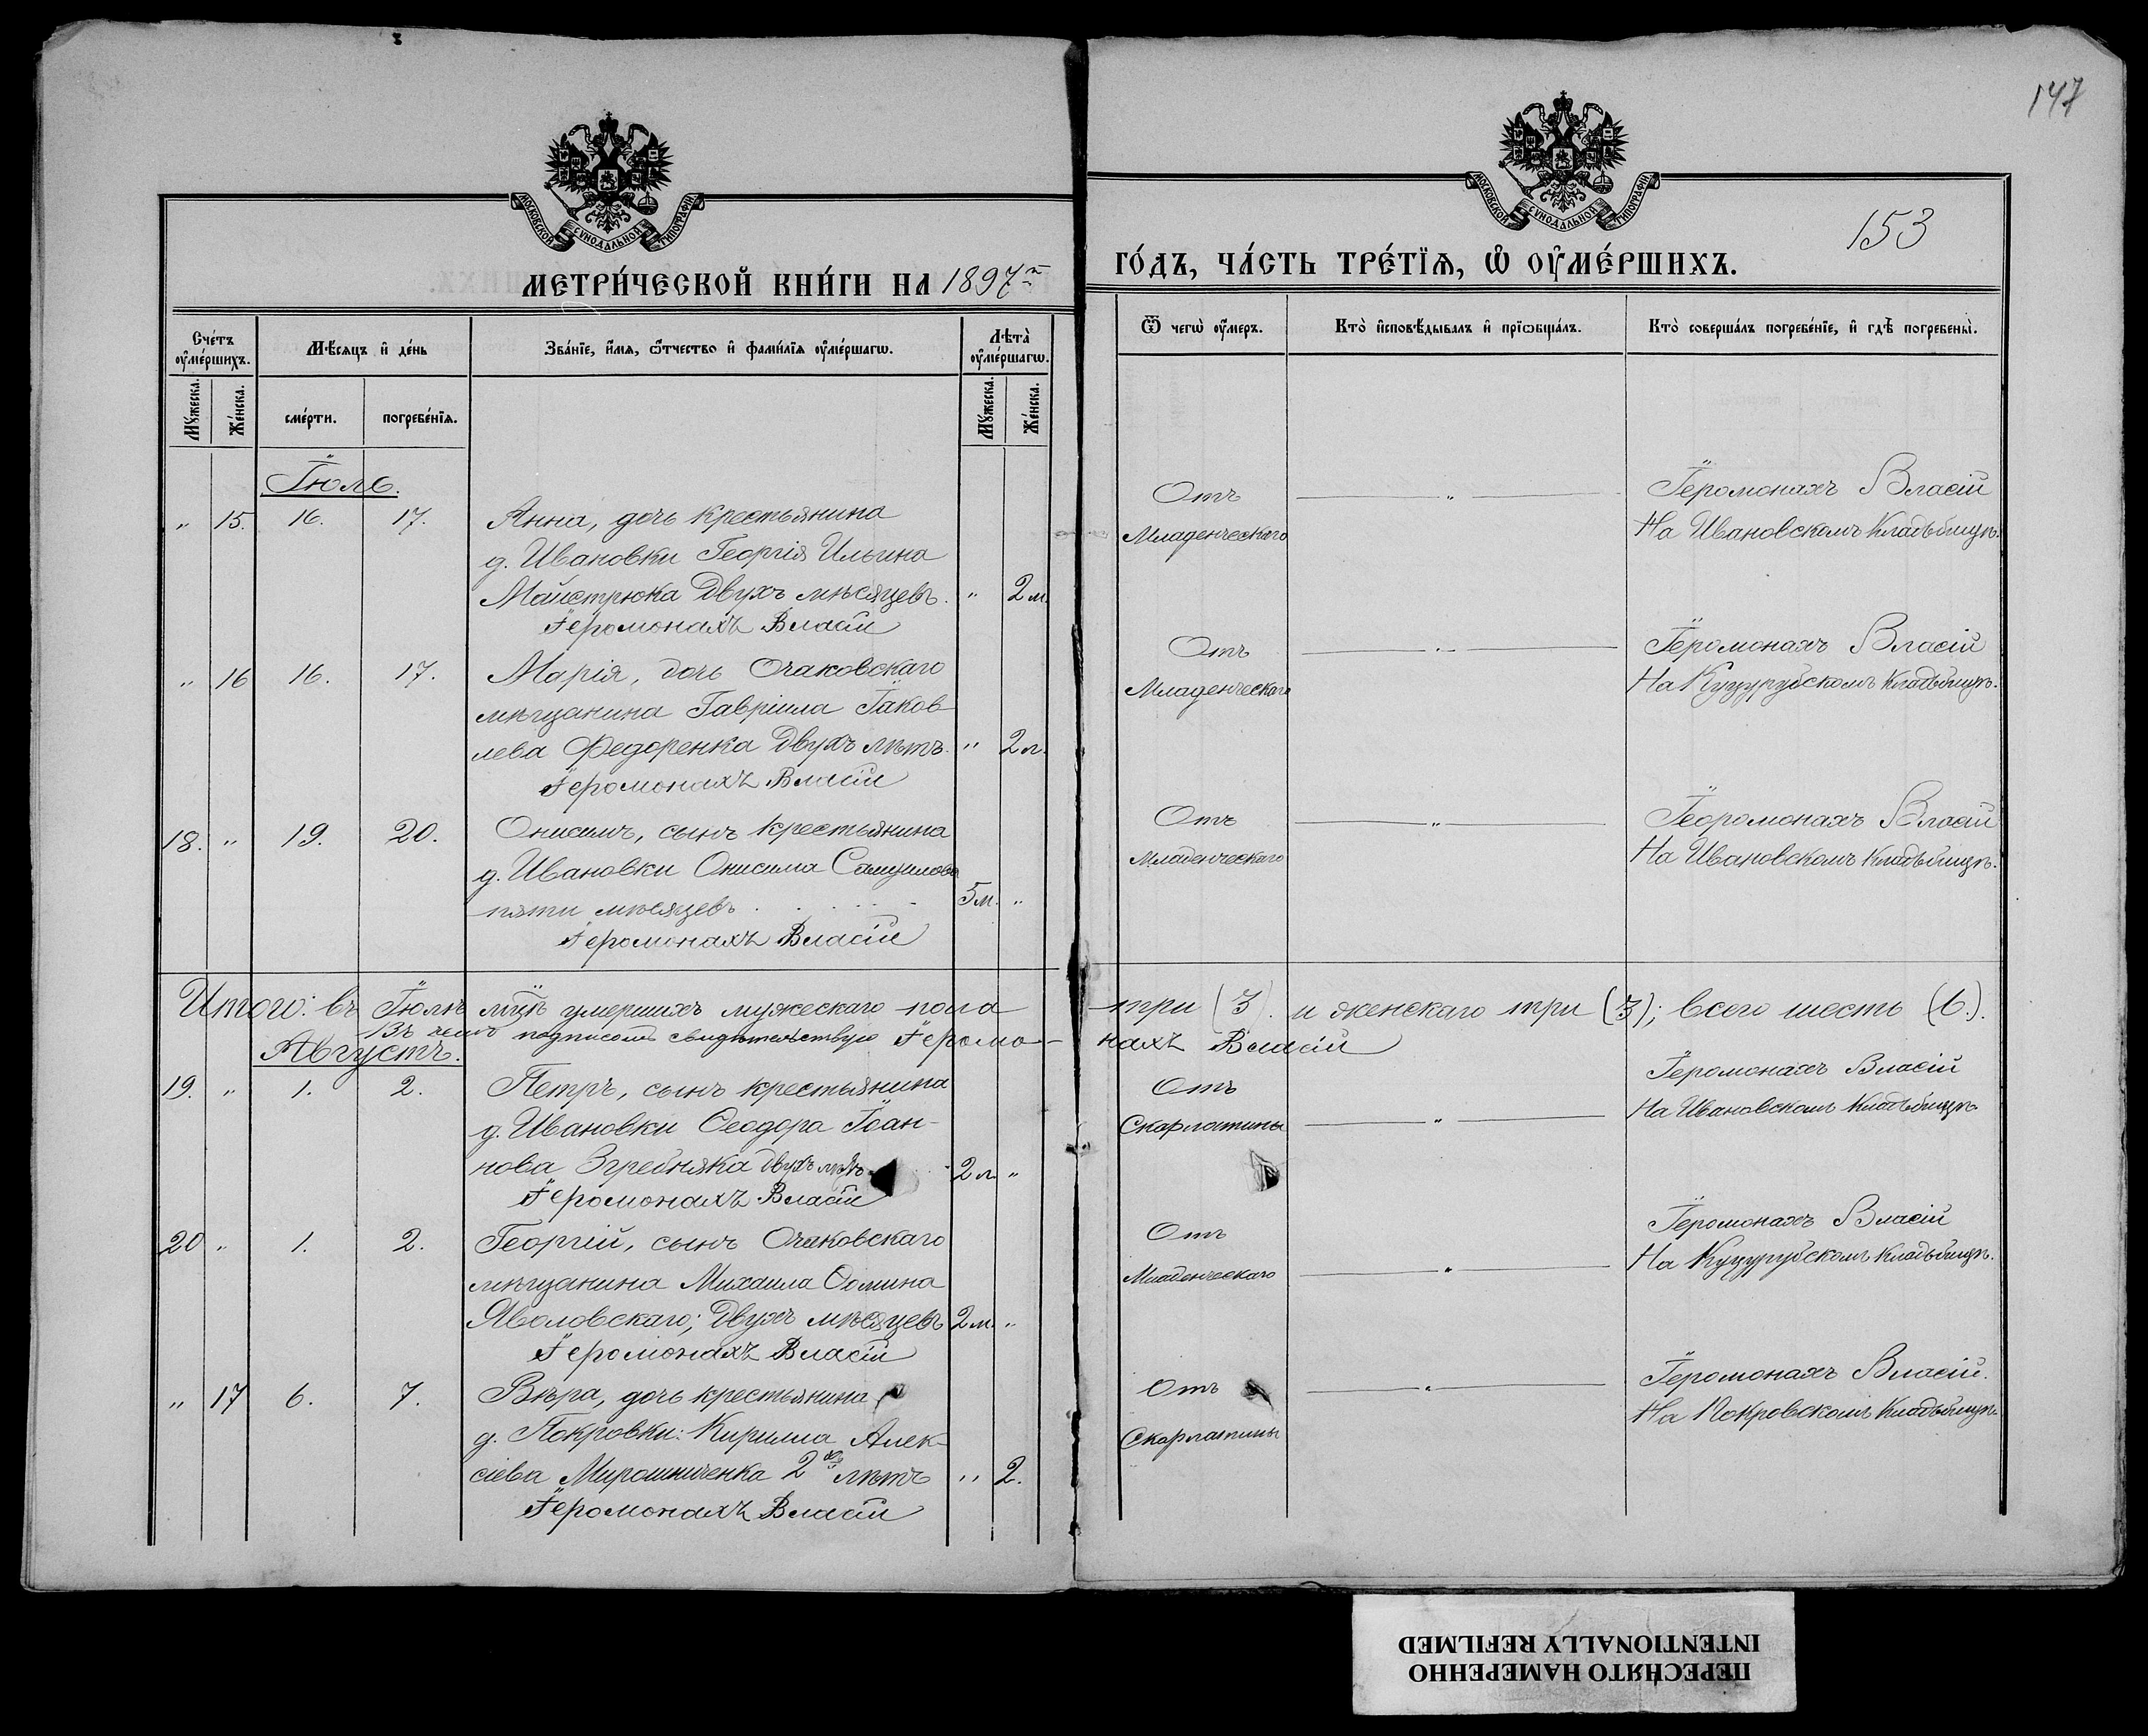 147
МОСКОВСКОЙ СѴНОДАЛЬНОЙ ТИПОГРАФІИ
МОСКОВСКОЙ СѴНОДАЛЬНОЙ ТИПОГРАФІИ
153
МЕТРИ́ЧЕСКОЙ КНИ́ГИ НА 1897й
ГО́ДЪ, ЧА́СТЬ ТРЕ́ТЇѦ, Ѡ ОУМЕ́РШИХЪ.
Сче́тъ оуме́ршихъ.
Мѣ́сяцъ и де́нь
Зва́нїе, и́мѧ, ѻ́тчество и фами́лїѧ оуме́ршагѡ.
Лѣта̀ оуме́ршагѡ.
Ѿ чегѡ̀ оу́меръ.
Кто̀ и҆сповѣ́дывалъ и҆ прїѡбща́лъ.
Кто̀ соверша́лъ погребе́нїе, и҆ гдѣ̀ погребены̀.
Мꙋ́жеска.
Же́нска.
сме́рти.
погребе́нїѧ.
Мꙋ́жеска.
Же́нска.
Іюль.
" 15. 16. 17. Анна, дочь крестьянина
д. Ивановки Георгія Ильина
Майстрюка двухъ мѣсяцевъ. " 2 м.
Іеромонахъ Власій
Отъ Младенческаго
"
Іеромонахъ Власій
На Ивановскомъ кладбищѣ.
" 16 16. 17. Марія, дочь Очаковскаго
мѣщанина Гавріила Іаков-
лева Федоренка двухъ лѣтъ. " 2 л.
Іеромонахъ Власій
Отъ Младенческаго
"
Іеромонахъ Власій
На Куцурубскомъ кладбищѣ.
18. " 19. 20. Онисимъ, сынъ крестьянина
д. Ивановки Онисима Самуилова
пяти мѣсяцевъ 5 м. "
Іеромонахъ Власій
Отъ Младенческаго
"
Іеоромонахъ Власій
На Ивановскомъ кладбищѣ.
Итого: въ Іюлѣ мцѣ умершихъ мужескаго пола три (3). и женскаго три (3); всего шесть (6.).
Въ чемъ подписомъ свидѣтельствую Іеромо-нахъ Власій
Августъ.
19. " 1. 2. Петръ, сынъ крестьянина
д. Ивановки Ѳеодора Іоан-
нова Згребняка двухъ лѣтъ 2 л. "
Іеромонахъ Власій
Отъ Скарлатины
"
Іеромонахъ Власій
На Ивановскомъ кладбищѣ
20 " 1. 2. Георгій, сынъ Очаковскаго
мѣщанина Михаила Ѳомина
Яволовскаго; двухъ мѣсяцевъ 2 м. "
Іеромонахъ Власій
Отъ Младенческаго
"
Іеромонахъ Власій
На Куцурубскомъ кладбищѣ.
" 17 6. 7. Вѣра, дочь крестьянина
д. Покровки: Кирилла Алек-
сіева Мирошниченка 2хъ лѣтъ " 2.
Іеромонахъ Власій
Отъ Скарлатины
"
Іеромонахъ Власій.
На Покровскомъ кладбищѣ.
ПЕРЕСНЯТО НАМЕРЕННО
INTENTIONALLY REFILMED